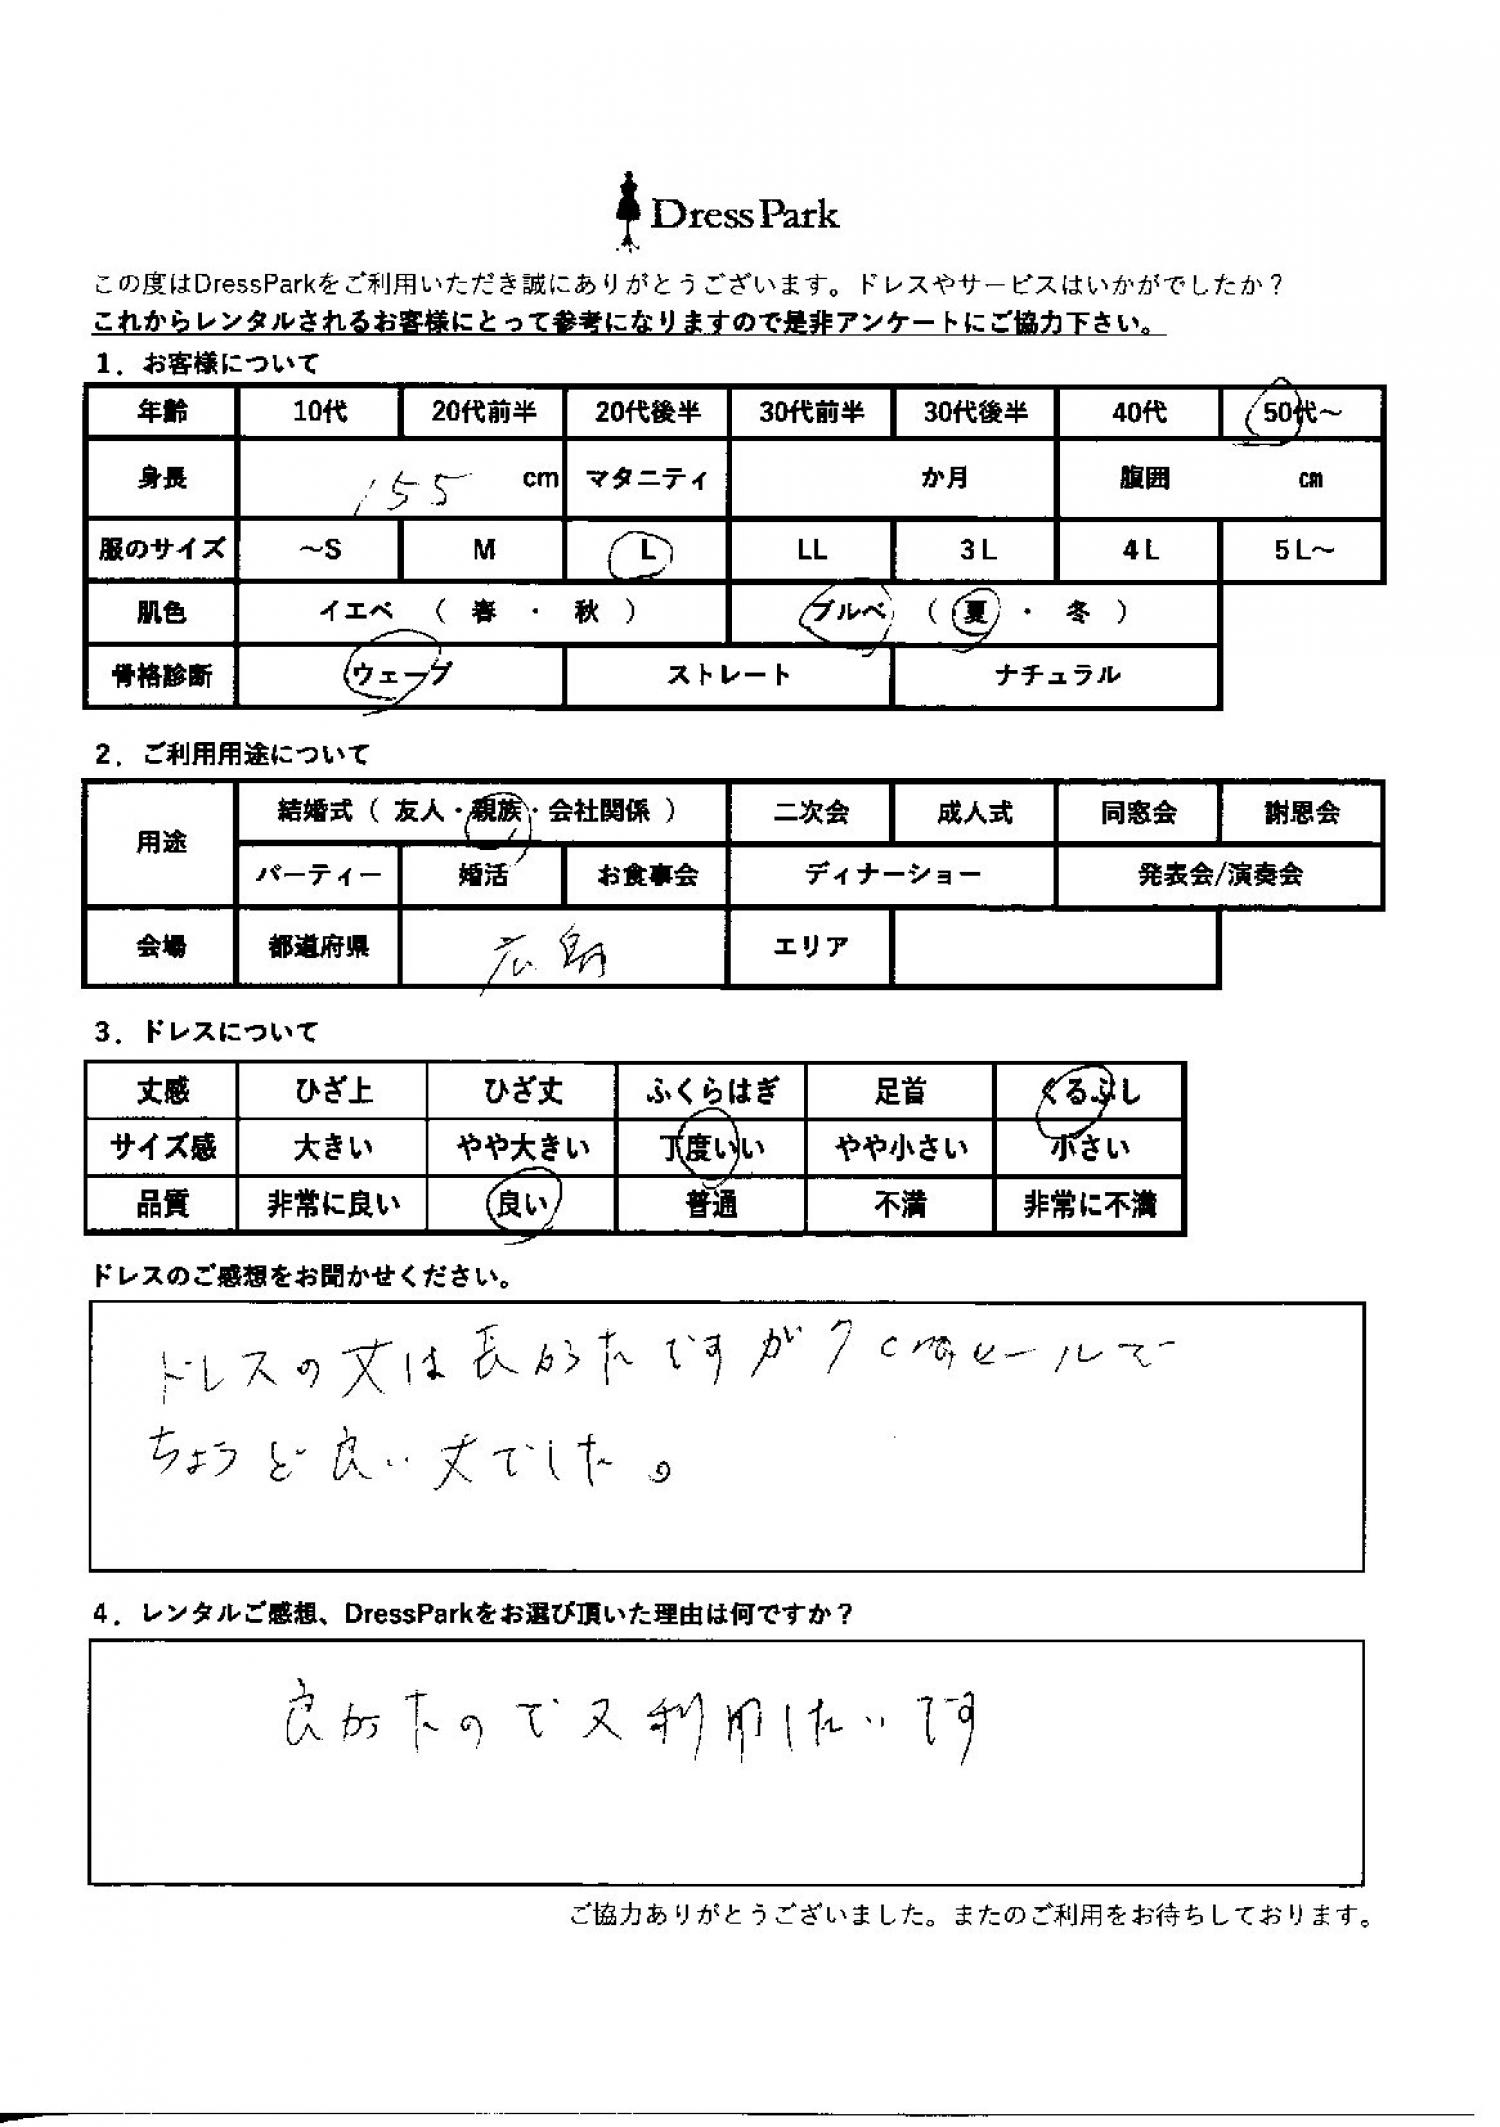 DressPark
この度はDressParkをご利用いただき誠にありがとうございます。ドレスやサービスはいかがでしたか？
これからレンタルされるお客様にとって参考になりますので是非アンケートにご協力下さい。
1．お客様について
年齢 10代 20代前半 20代後半 30代前半 30代後半 40代 50代～
身長 155 cm マタニティ か月 腹囲 cm
服のサイズ ～S M L LL 3L 4L 5L～
肌色 イエベ （ 春 ・ 秋 ） ブルベ （ 夏 ・ 冬 ）
骨格診断 ウェーブ ストレート ナチュラル
2．ご利用用途について
用途 結婚式（ 友人・親族・会社関係 ） 二次会 成人式 同窓会 謝恩会
パーティー 婚活 お食事会 ディナーショー 発表会/演奏会
会場 都道府県 広島 エリア
3．ドレスについて
丈感 ひざ上 ひざ丈 ふくらはぎ 足首 くるぶし
サイズ感 大きい やや大きい 丁度いい やや小さい 小さい
品質 非常に良い 良い 普通 不満 非常に不満
ドレスのご感想をお聞かせください。
ドレスの丈は長かったですが7cmヒールで
ちょうど良い丈でした。
4．レンタルご感想、DressParkをお選び頂いた理由は何ですか？
良かったので又利用したいです
ご協力ありがとうございました。またのご利用をお待ちしております。